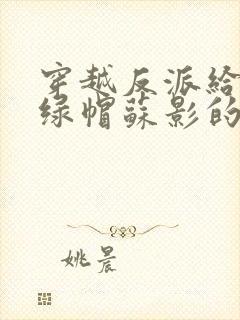 穿越反派給
绿帽蘇影的
姚晨